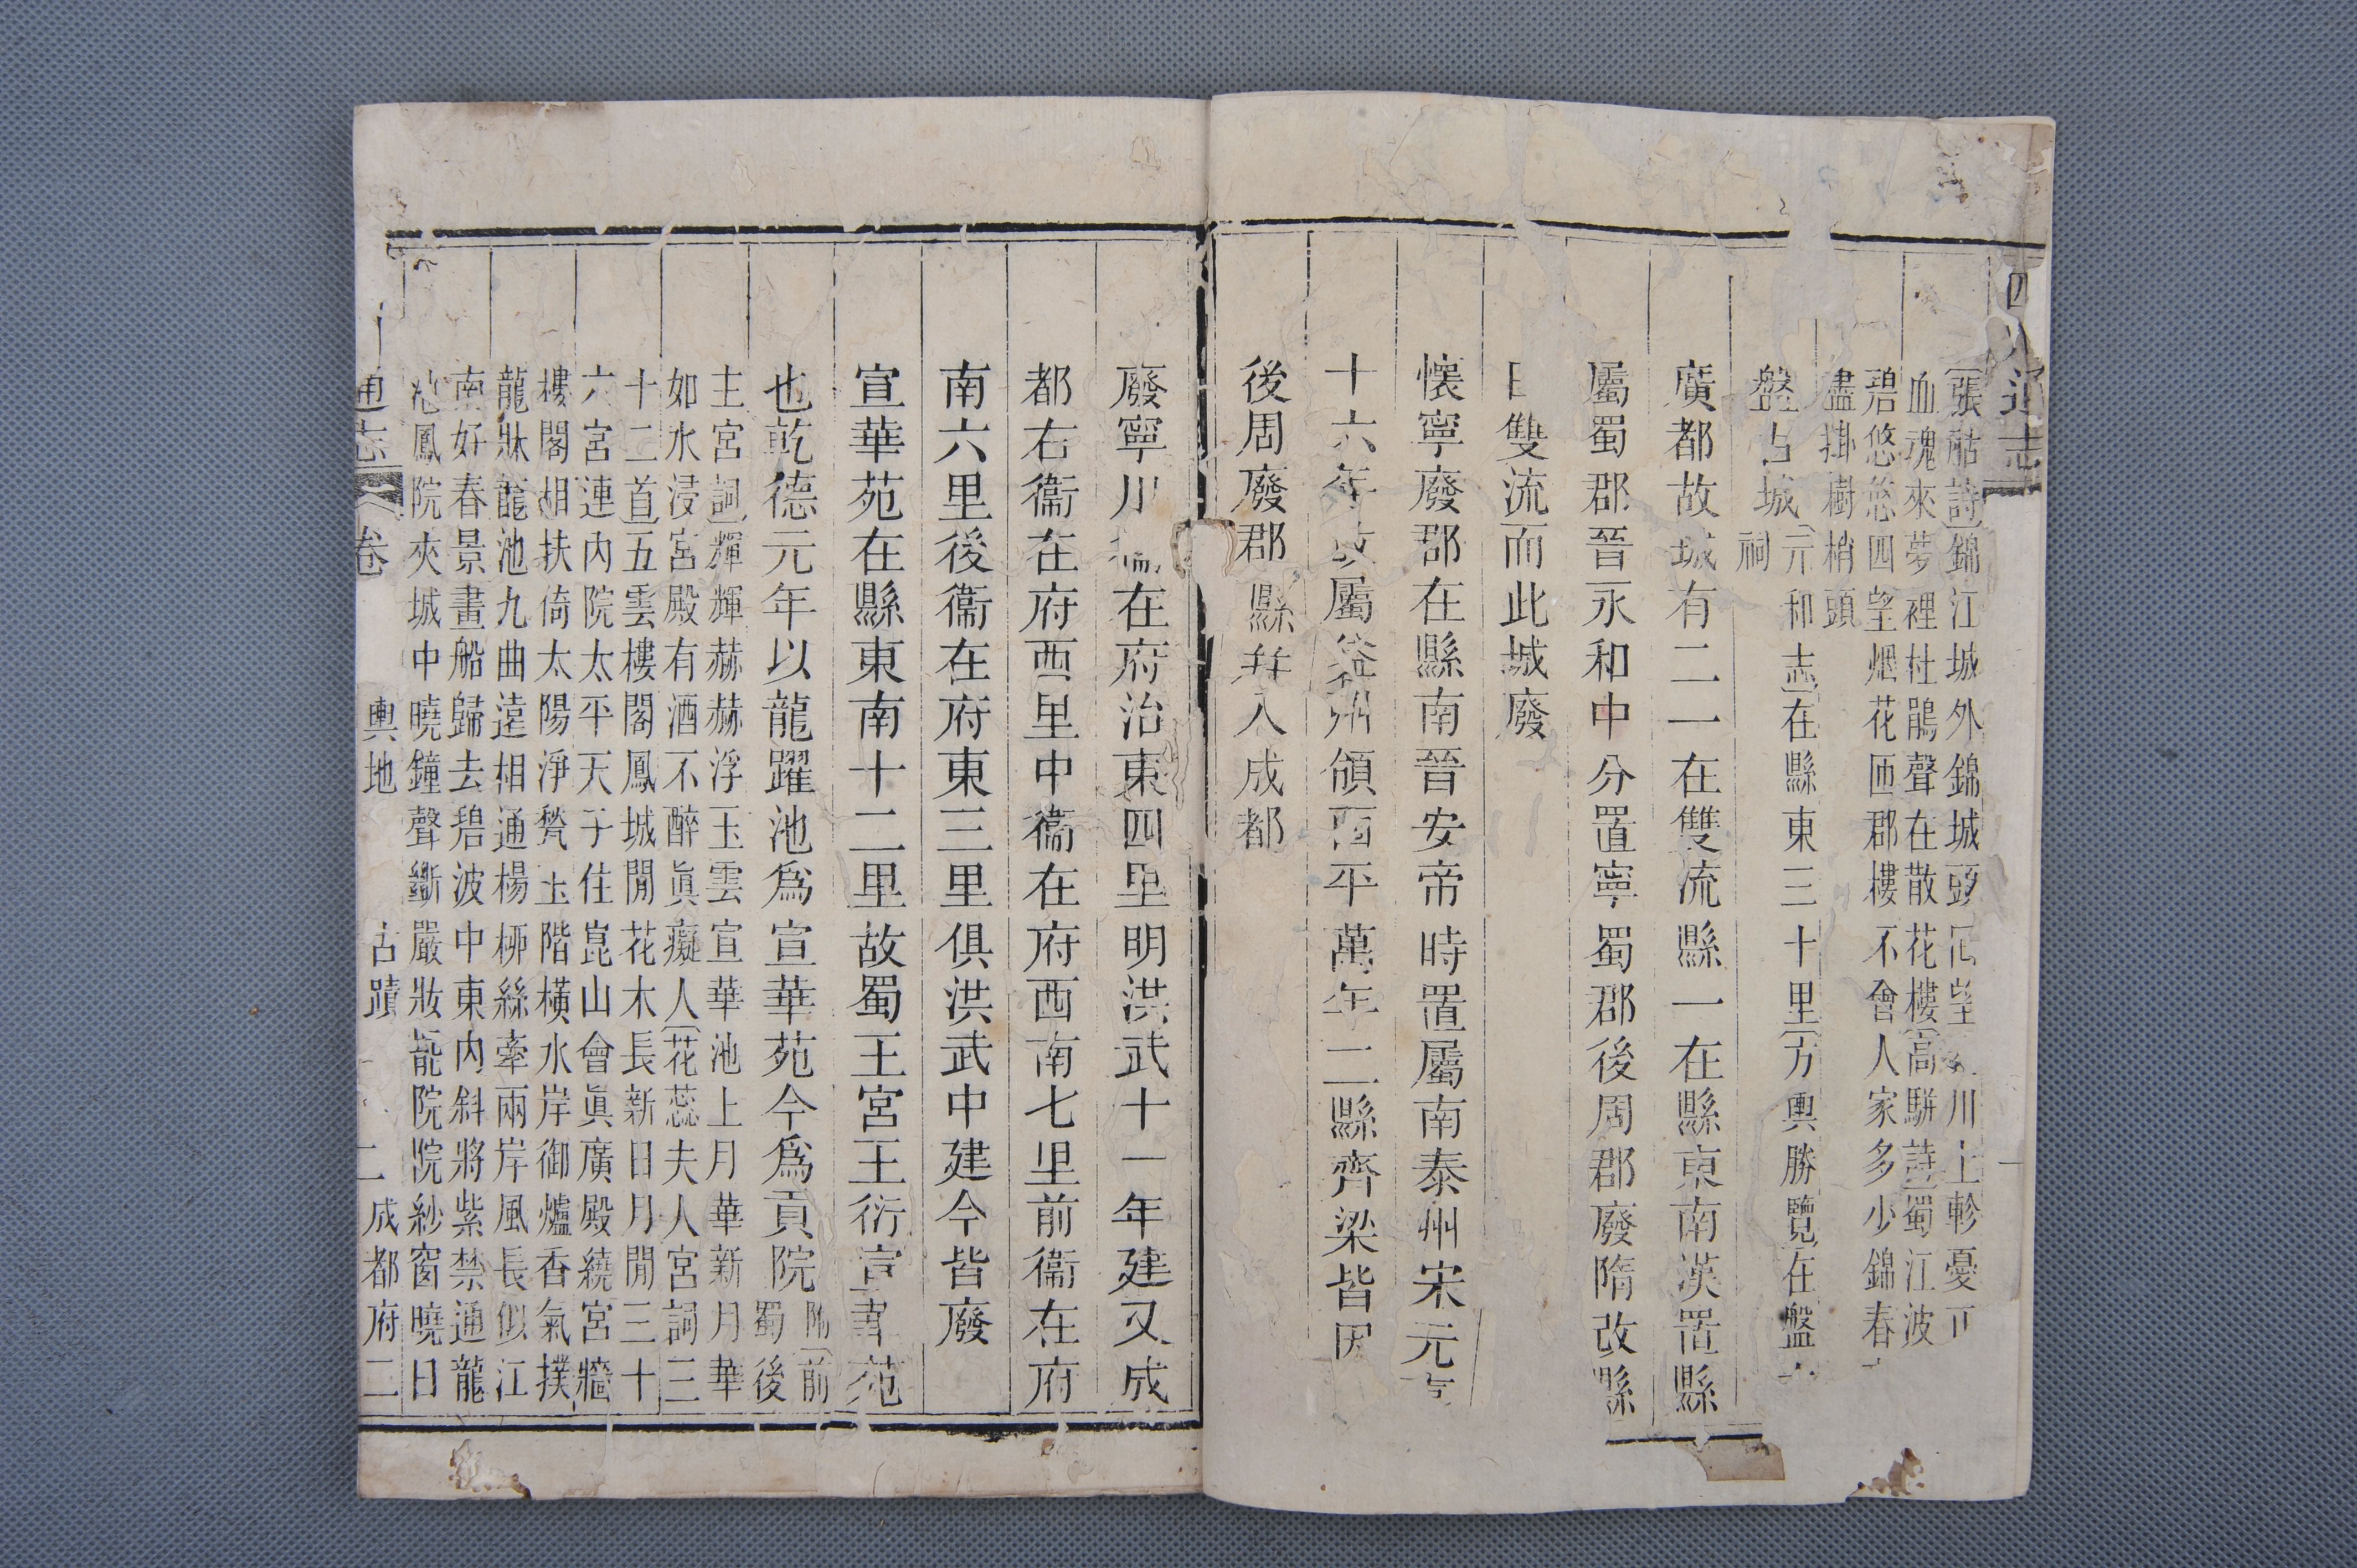 四川通志
張祜詩錦江城外錦城頭回望川上軫憂
血魂來夢裡杜鵑聲在散花樓高駢詩蜀江波
碧悠悠四望烟花匝郡樓不會人家多少錦春
盡掛樹梢頭
盤古城元和志在縣東三十里方輿勝覽在盤
祠
廣都故城有二一在雙流縣一在縣東南漢置縣
屬蜀郡晉永和中分置寧蜀郡後周郡廢隋改縣
曰雙流而此城廢
懷寧廢郡在縣南晉安帝時置屬南秦州宋元
十六年改屬益州領西平萬年二縣齊梁皆因
後周廢郡縣并入成都
廢寧川衞在府治東四里明洪武十一年建又成
都右衞在府西里中衞在府西南七里前衞在府
南六里後衞在府東三里俱洪武中建今皆廢
宣華苑在縣東南十二里故蜀王宮王衍宣華苑
也乾德元年以龍躍池爲宣華苑今爲貢院前
蜀後
主宮詞輝輝赫赫浮玉雲宣華池上月華新月華
如水浸宮殿有酒不醉眞癡人花蕊夫人宮詞三
十二首五雲樓閣鳳城閒花木長新日月閒三十
六宮連內院太平天子住崑山會眞廣殿繞宮牆
樓閣相扶倚太陽淨甃玉階橫水岸御爐香氣撲
龍牀龍池九曲遠相通楊栁絲牽兩岸風長似江
南好春景畫船歸去碧波中東內斜將紫禁通龍
池鳳院夾城中曉鐘聲斷嚴妝罷院院紗窗曉日
通志卷 輿地 古蹟 二 成都府二